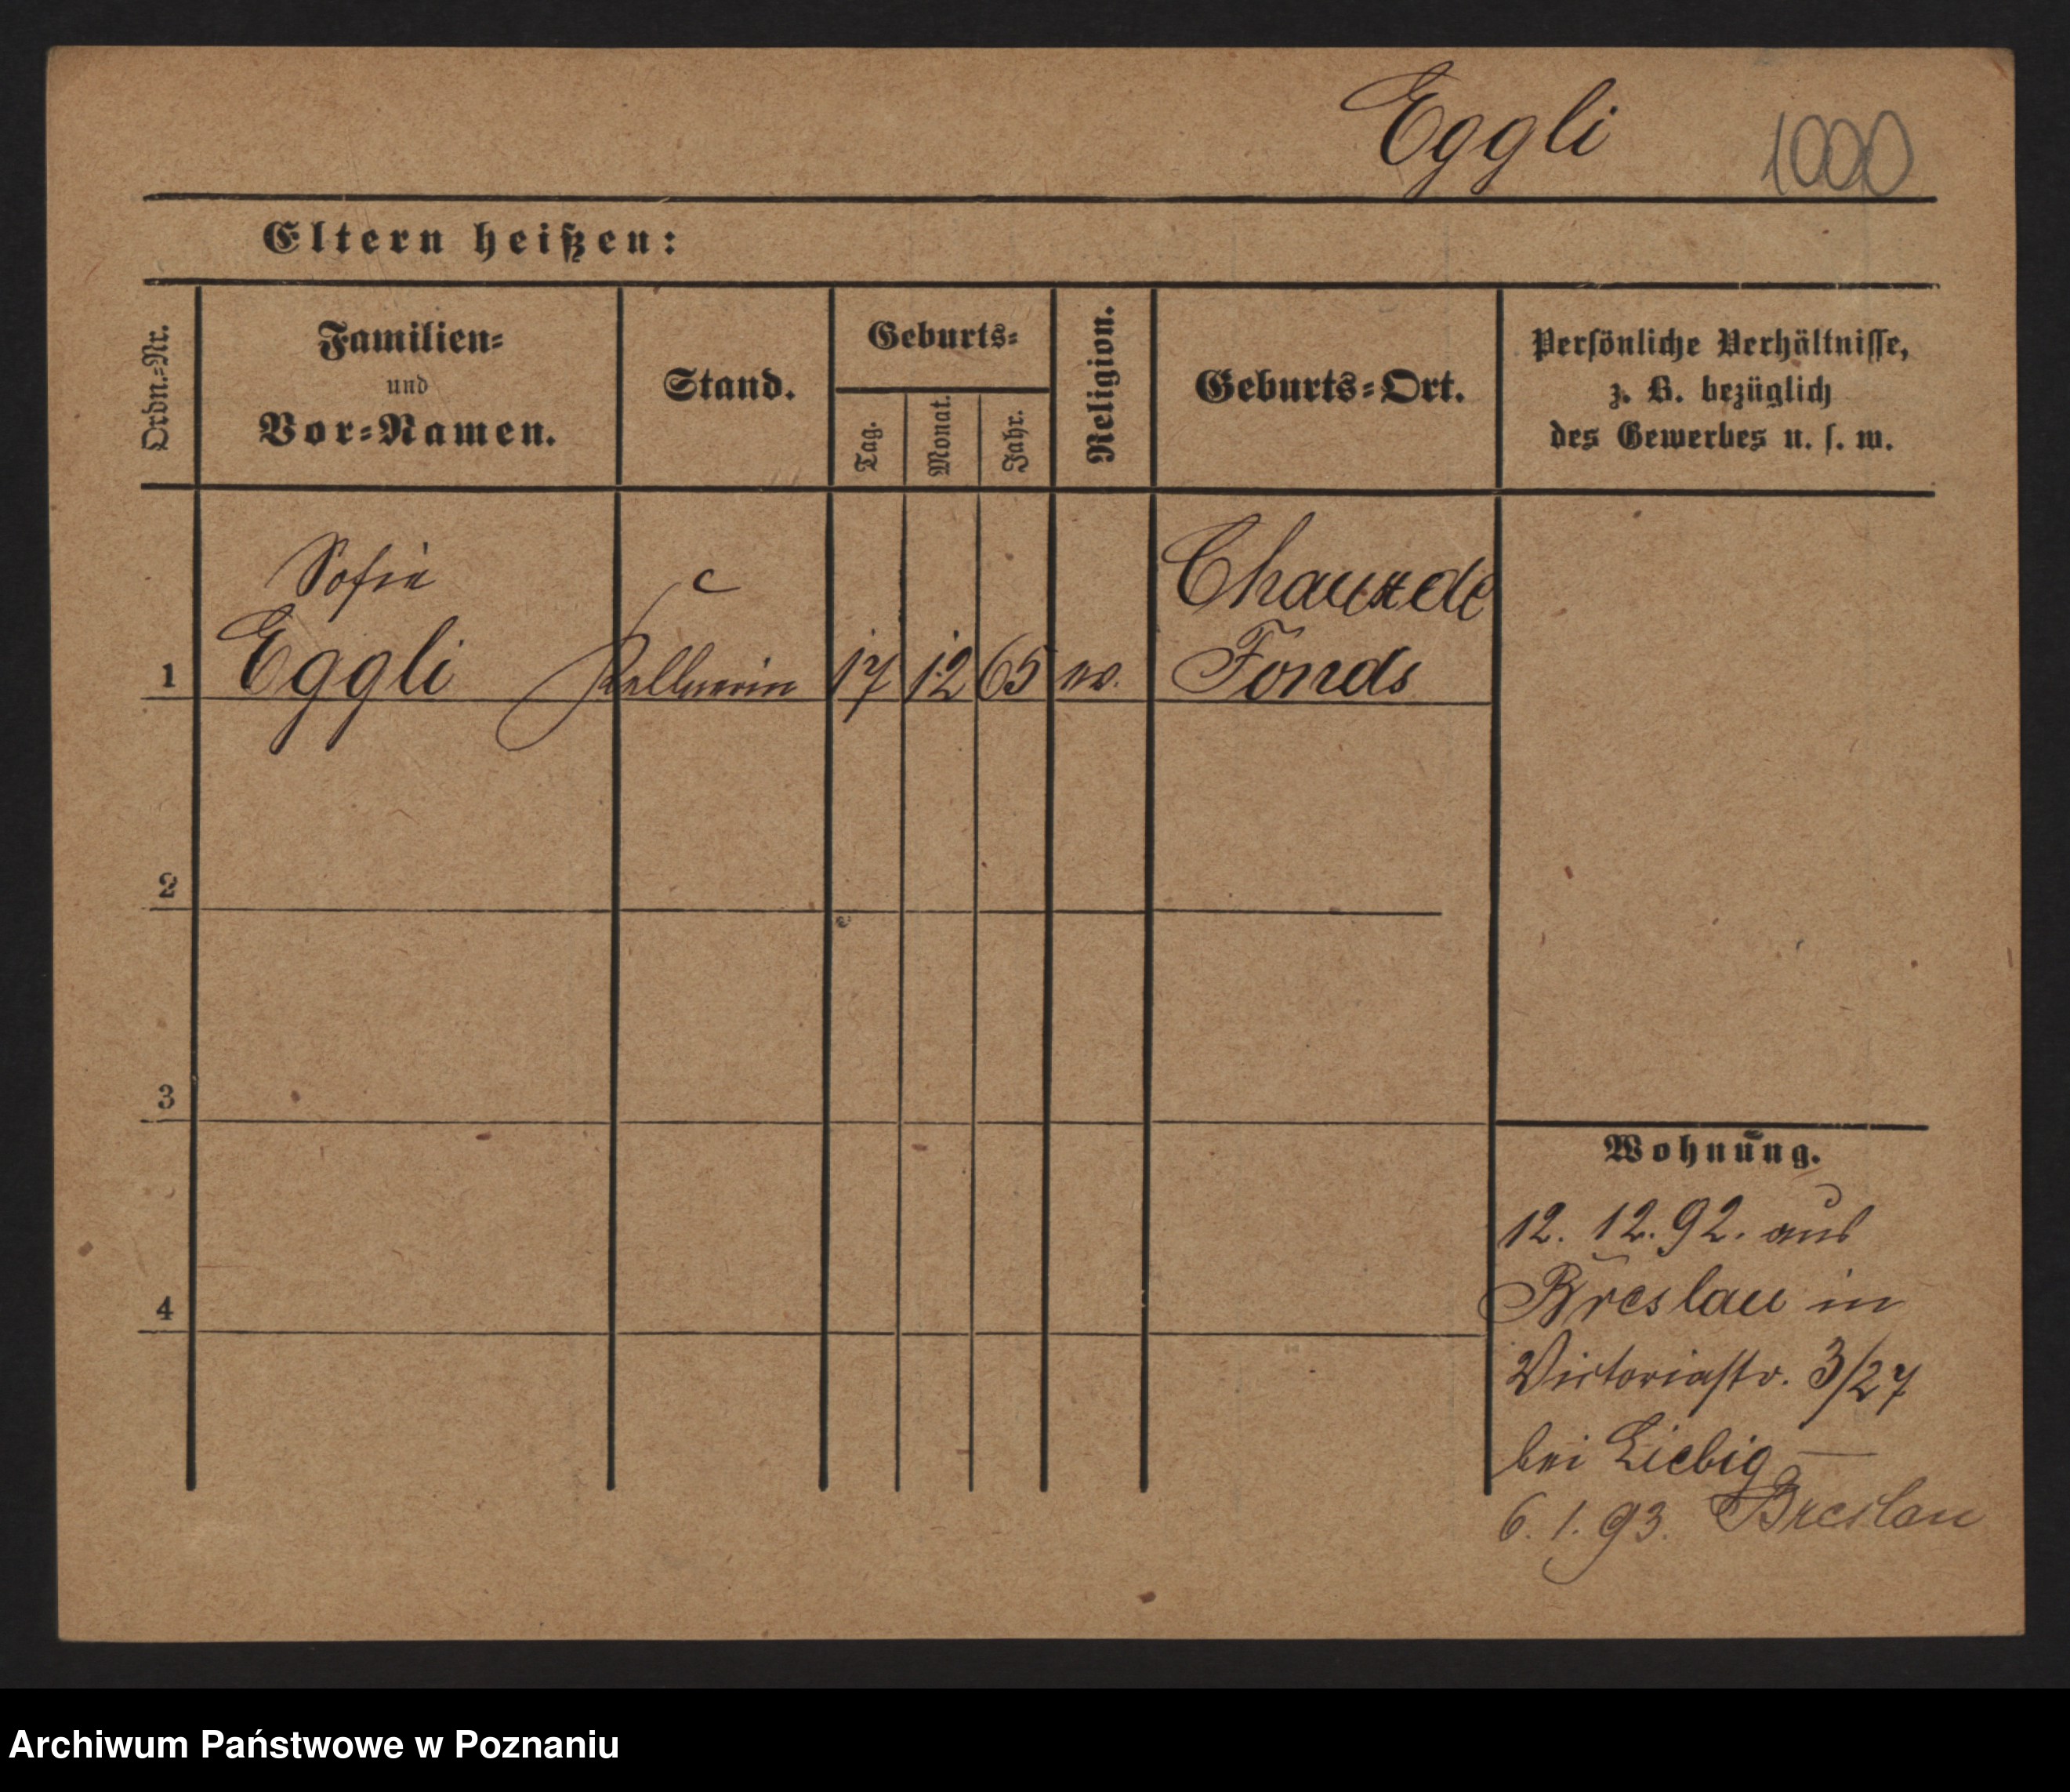 Eggli 1000
Eltern heißen:
Ordn.-Nr.
Familien-
und
Vor-Namen.
Stand.
Geburts-
Tag.
Monat.
Jahr.
Religion.
Geburts-Ort.
Persönliche Verhältnisse,
z. B. bezüglich
des Gewerbes u. s. w.
Sofie
1 Eggli Kellnerin 17 12 65 ev.
Chauxde
Fonds
2
3
4
Wohnung.
12. 12. 92. aus
Breslau in
Victoriastr. 3/27
bei Liebig —
6. 1. 93. Breslau
Archiwum Państwowe w Poznaniu